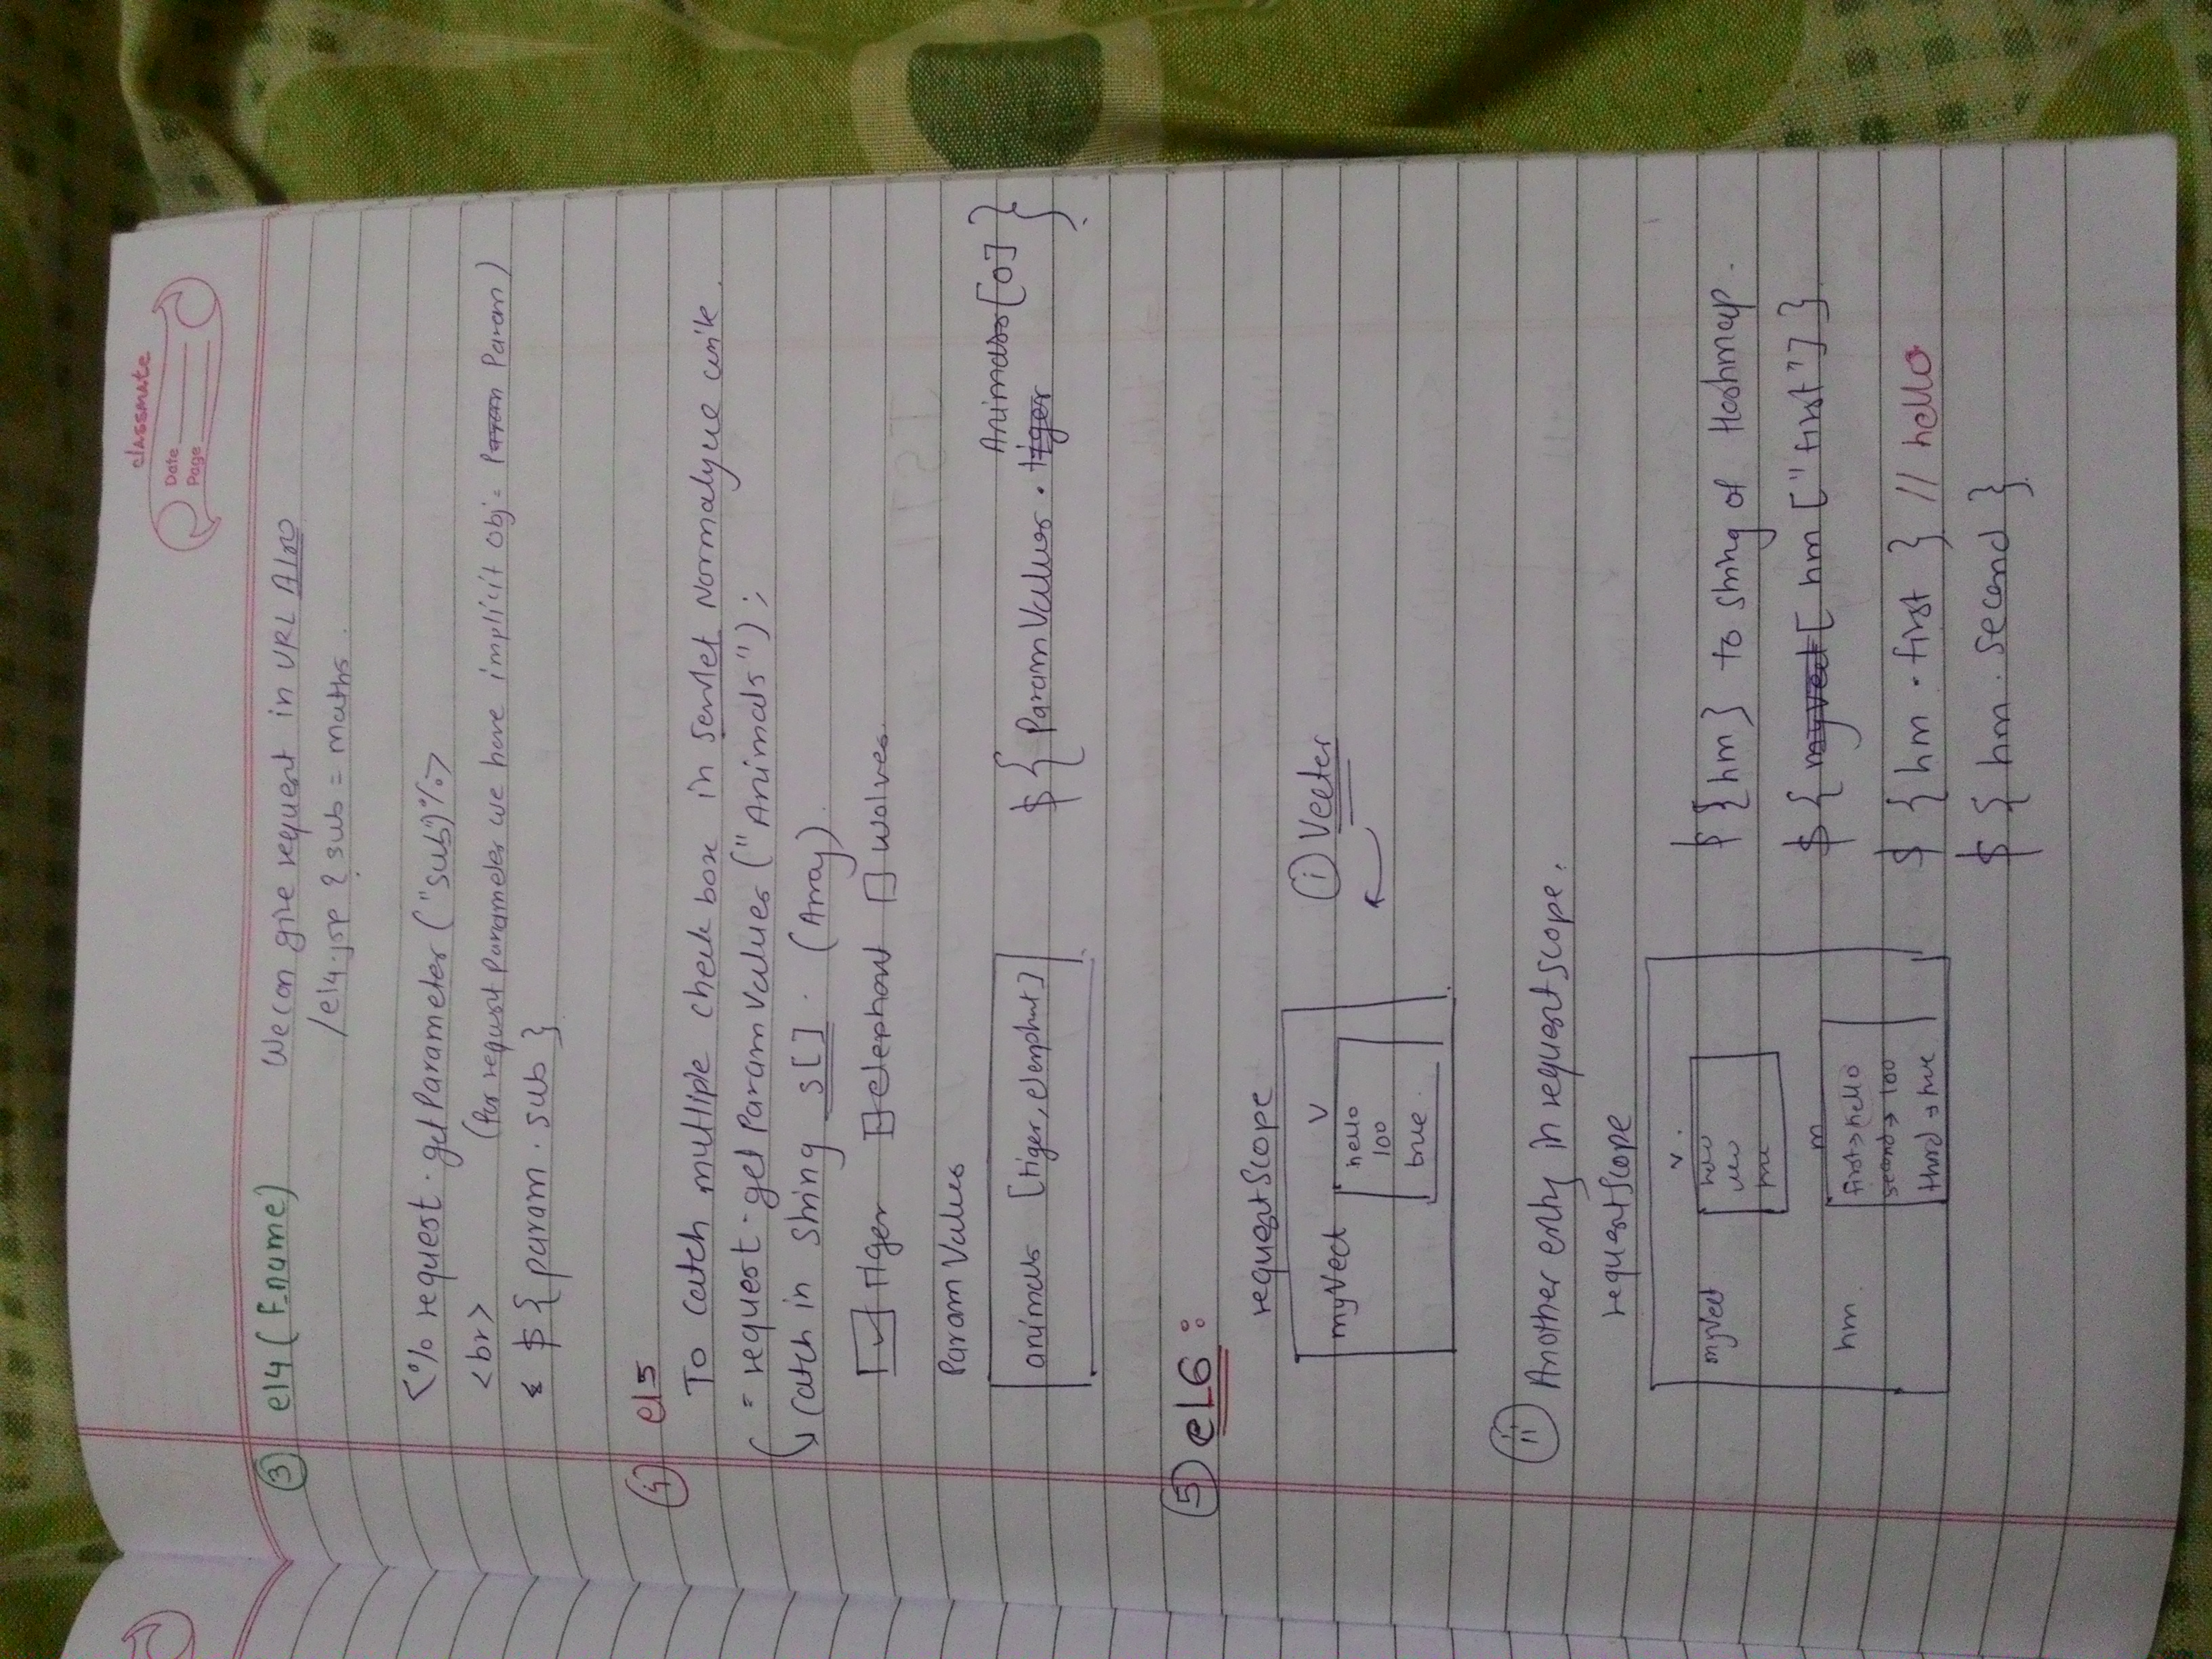 classmate
Date
Page
③ el4 ( F.name) We can give request in URL Also
/el4.jsp ? sub = maths.
<% request.getParameter ("sub")%>
<br> (for request Parameter we have implicit obj = Param Param)
${ param . sub }
④ el5
To catch multiple check box in servlet Normaly we write.
= request.get Param Values ("Animals") ;
catch in String s[] . (Array).
Tiger elephant wolves.
Param Values
animals [tiger, elemphat] ${ Param Values . tiger Animals [0] }
⑤ eL6 :
requestScope
myVect V ⓘ Vecter
hello
100
true.
ⓘⓘ Another entry in request scope.
requestScope
v.
myVect ${hm} to string of Hashmap.
true
m ${ myvect [ hm ["first"] }
hm. first → hello
second → 100
third → true ${ hm . first } // hello
${ hm . second }